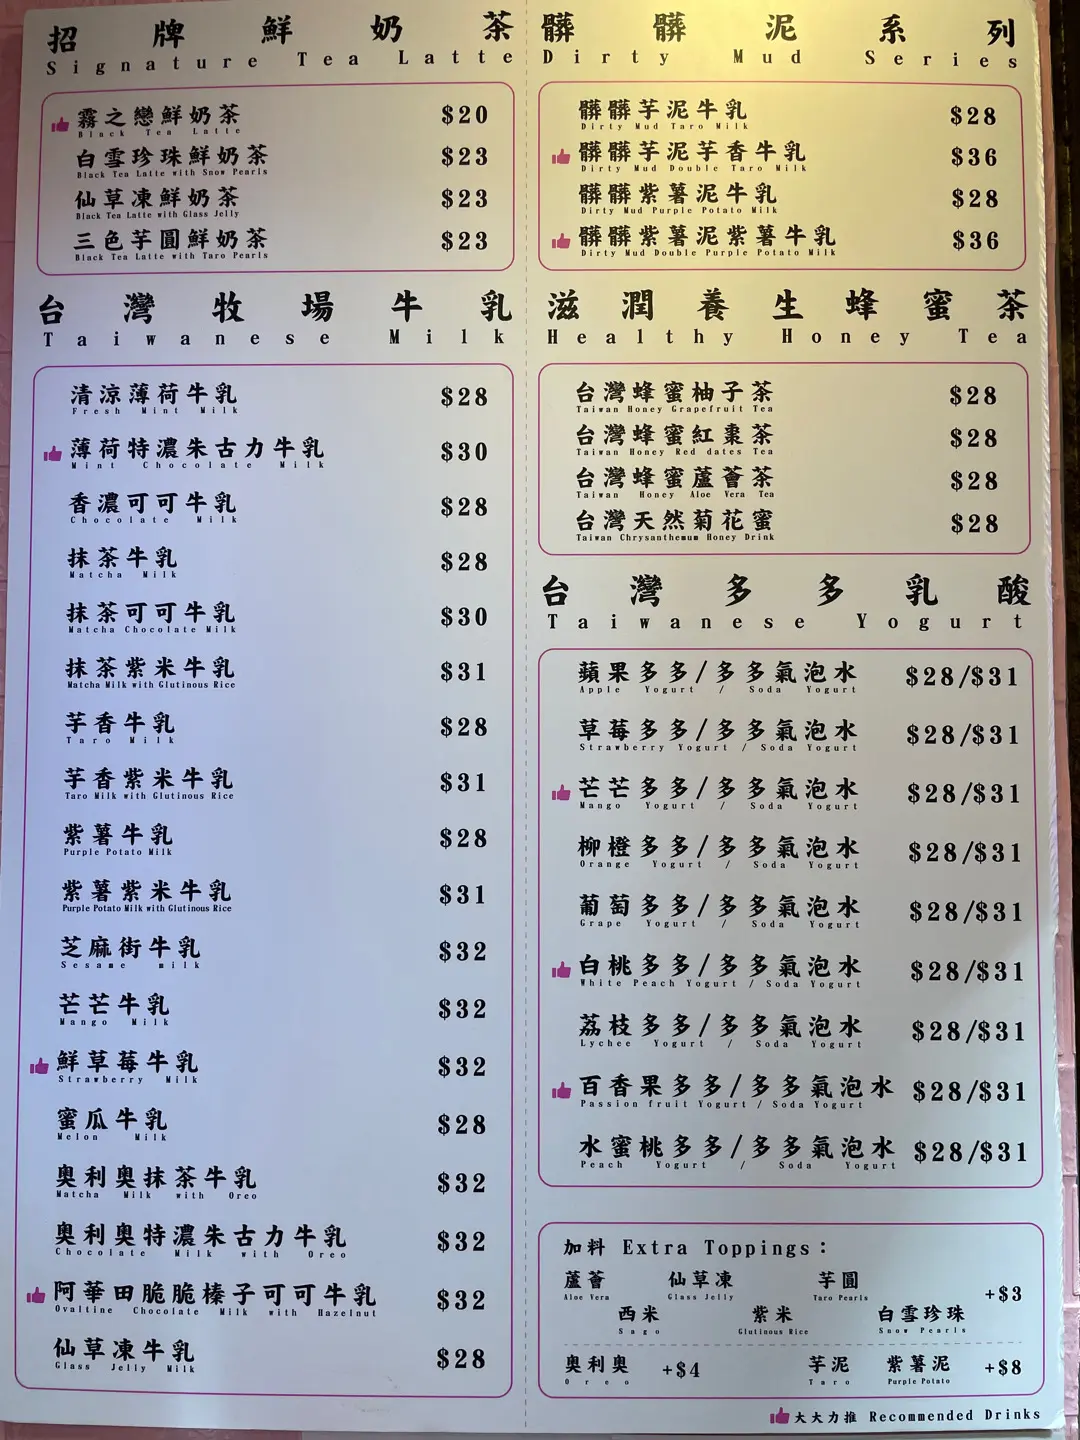 招牌鮮奶茶
Signature Tea Latte
霧之戀鮮奶茶 $20
Black Tea Latte
白雪珍珠鮮奶茶 $23
Black Tea Latte with Snow Pearls
仙草凍鮮奶茶 $23
Black Tea Latte with Glass Jelly
三色芋圓鮮奶茶 $23
Black Tea Latte with Taro Pearls
台灣牧場牛乳
Taiwanese Milk
清涼薄荷牛乳 $28
Fresh Mint Milk
薄荷特濃朱古力牛乳 $30
Mint Chocolate Milk
香濃可可牛乳 $28
Chocolate Milk
抹茶牛乳 $28
Matcha Milk
抹茶可可牛乳 $30
Matcha Chocolate Milk
抹茶紫米牛乳 $31
Matcha Milk with Glutinous Rice
芋香牛乳 $28
Taro Milk
芋香紫米牛乳 $31
Taro Milk with Glutinous Rice
紫薯牛乳 $28
Purple Potato Milk
紫薯紫米牛乳 $31
Purple Potato Milk with Glutinous Rice
芝麻街牛乳 $32
Sesame milk
芒芒牛乳 $32
Mango Milk
鮮草莓牛乳 $32
Strawberry Milk
蜜瓜牛乳 $28
Melon Milk
奧利奧抹茶牛乳 $32
Matcha Milk with Oreo
奧利奧特濃朱古力牛乳 $32
Chocolate Milk with Oreo
阿華田脆脆榛子可可牛乳 $32
Ovaltine Chocolate Milk with Hazelnut
仙草凍牛乳 $28
Glass Jelly Milk
髒髒泥系列
Dirty Mud Series
髒髒芋泥牛乳 $28
Dirty Mud Taro Milk
髒髒芋泥芋香牛乳 $36
Dirty Mud Double Taro Milk
髒髒紫薯泥牛乳 $28
Dirty Mud Purple Potato Milk
髒髒紫薯泥紫薯牛乳 $36
Dirty Mud Double Purple Potato Milk
滋潤養生蜂蜜茶
Healthy Honey Tea
台灣蜂蜜柚子茶 $28
Taiwan Honey Grapefruit Tea
台灣蜂蜜紅棗茶 $28
Taiwan Honey Red dates Tea
台灣蜂蜜蘆薈茶 $28
Taiwan Honey Aloe Vera Tea
台灣天然菊花蜜 $28
Taiwan Chrysanthemum Honey Drink
台灣多多乳酸
Taiwanese Yogurt
蘋果多多/多多氣泡水 $28/$31
Apple Yogurt / Soda Yogurt
草莓多多/多多氣泡水 $28/$31
Strawberry Yogurt / Soda Yogurt
芒芒多多/多多氣泡水 $28/$31
Mango Yogurt / Soda Yogurt
柳橙多多/多多氣泡水 $28/$31
Orange Yogurt / Soda Yogurt
葡萄多多/多多氣泡水 $28/$31
Grape Yogurt / Soda Yogurt
白桃多多/多多氣泡水 $28/$31
White Peach Yogurt / Soda Yogurt
荔枝多多/多多氣泡水 $28/$31
Lychee Yogurt / Soda Yogurt
百香果多多/多多氣泡水 $28/$31
Passion fruit Yogurt / Soda Yogurt
水蜜桃多多/多多氣泡水 $28/$31
Peach Yogurt / Soda Yogurt
加料 Extra Toppings：
蘆薈 仙草凍 芋圓
Aloe Vera Glass Jelly Taro Pearls +$3
西米 紫米 白雪珍珠
Sago Glutinous Rice Snow Pearls
奧利奧 +$4 芋泥 紫薯泥 +$8
Oreo Taro Purple Potato
大大力推 Recommended Drinks